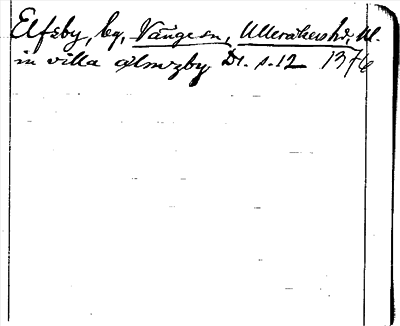 Elfsby, by, Vänge sn, Ulleråkers hd, Ul.
in villa ølmzby Dr. s. 12 1376